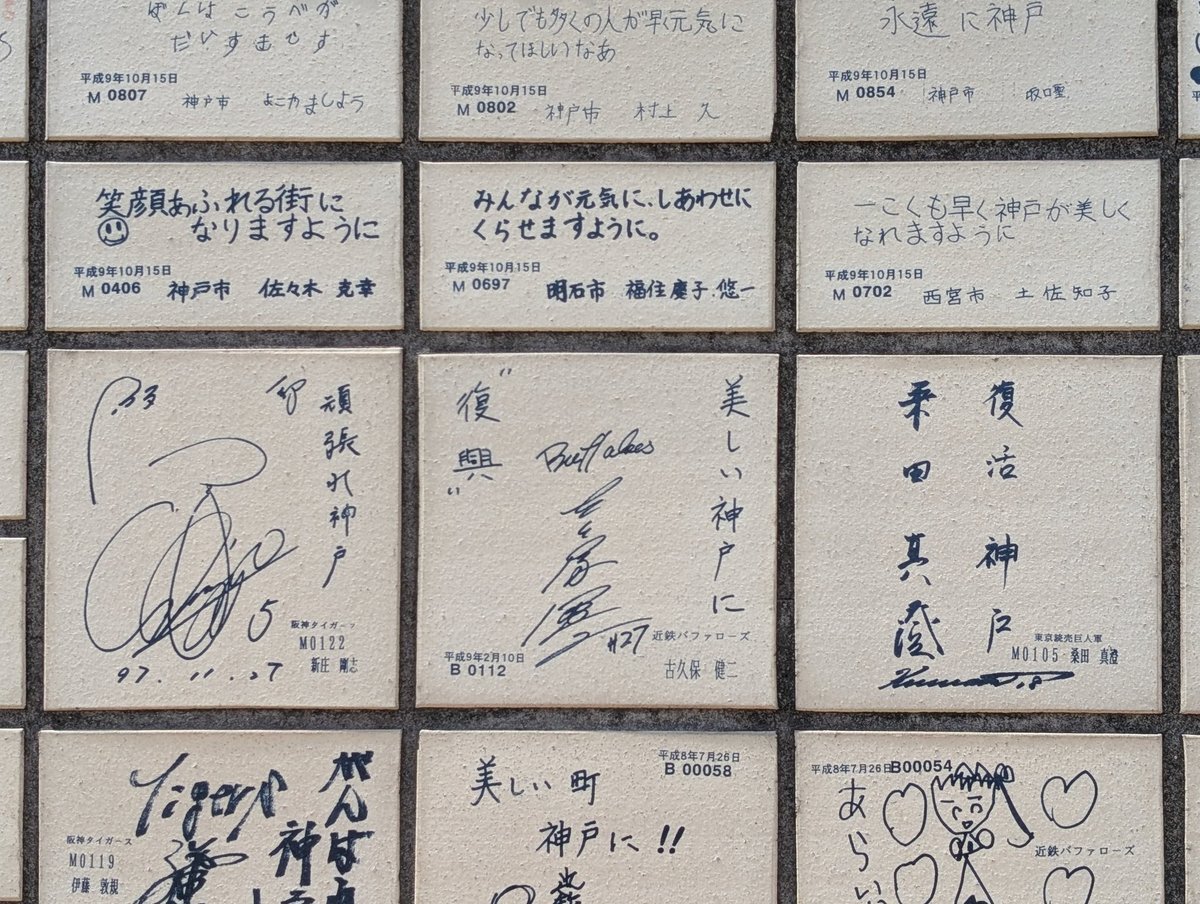 ぼくはこうべが
だいすきです
平成9年10月15日
M 0807 神戸市
少しでも多くの人が早く元気に
なってほしいなあ
平成9年10月15日
M 0802 神戸市 村上 久
永遠に神戸
平成9年10月15日
M 0854 神戸市 坂口聖
笑顔あふれる街に
なりますように
平成9年10月15日
M 0406 神戸市 佐々木 克幸
みんなが元気に、しあわせに
くらせますように。
平成9年10月15日
M 0697 明石市 福住慶子.悠一
一こくも早く神戸が美しく
なれますように
平成9年10月15日
M 0702 西宮市 土佐知子
頑張れ神戸
5
97.11.27
阪神タイガース
M0122
新庄 剛志
美しい神戸に
"復興"
Buffaloes
#27
近鉄バファローズ
平成9年2月10日
B 0112
古久保 健二
復活神戸
桑田真澄
東京読売巨人軍
M0105 桑田 真澄
18
がんば
神戸
Tigers
阪神タイガース
M0119
伊藤 敦規
平成8年7月26日
B 00058
美しい町
神戸に!!
平成8年7月26日
B00054
あらい
近鉄バファローズ